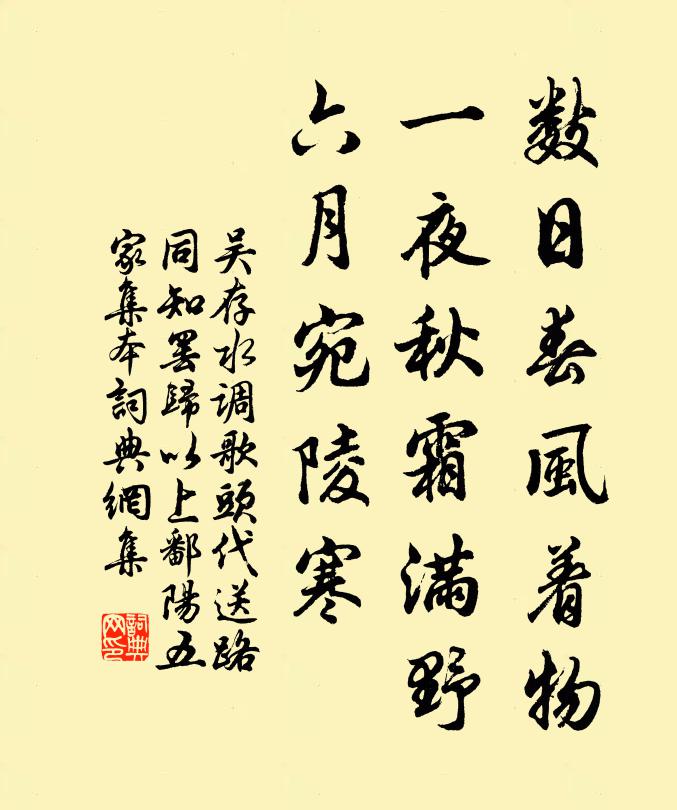 数日春風着物
一夜秋霜滿野
六月宛陵寒
吴存水调歌頭代送路
同知罢歸以上鄱陽五
家集本詞典網集
詞典网印